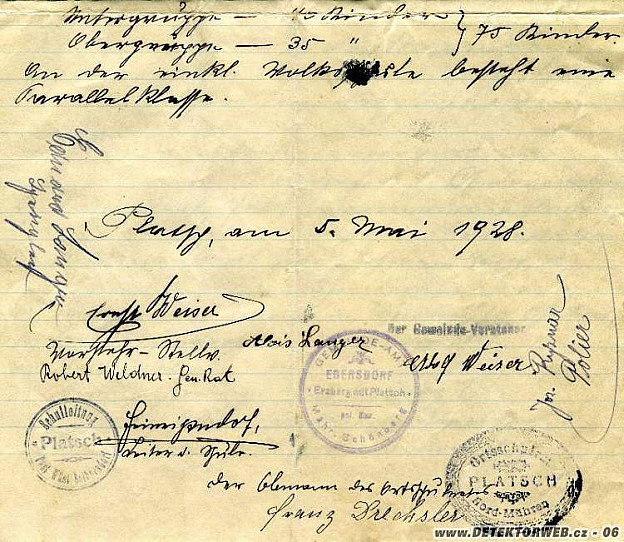 Untergruppe — 40 Kinder } 75 Kinder.
Obergruppe — 35 "
An der einkl. besteht eine
Parallelklasse.
Platsch, am 5. Mai 1928.
Ernst Weiser
Vorsteher-Stellv.
Alois Langer
Robert Weldner. Gem. Rat
Der Gemeinde-Vorsteher
Weiser
Jos.
Polier
GEMEINDE-AMT
EBERSDORF
Erzberg mit Platsch
pol. Bez.
Mähr. Schönberg
Schulleitung
Platsch
Leiter d. Schule.
Ortsschulrat
PLATSCH
Nord-Mähren
Der Obmann des Ortsschulrates
Franz Drechsler
www.DETEKTORWEB.cz - 06